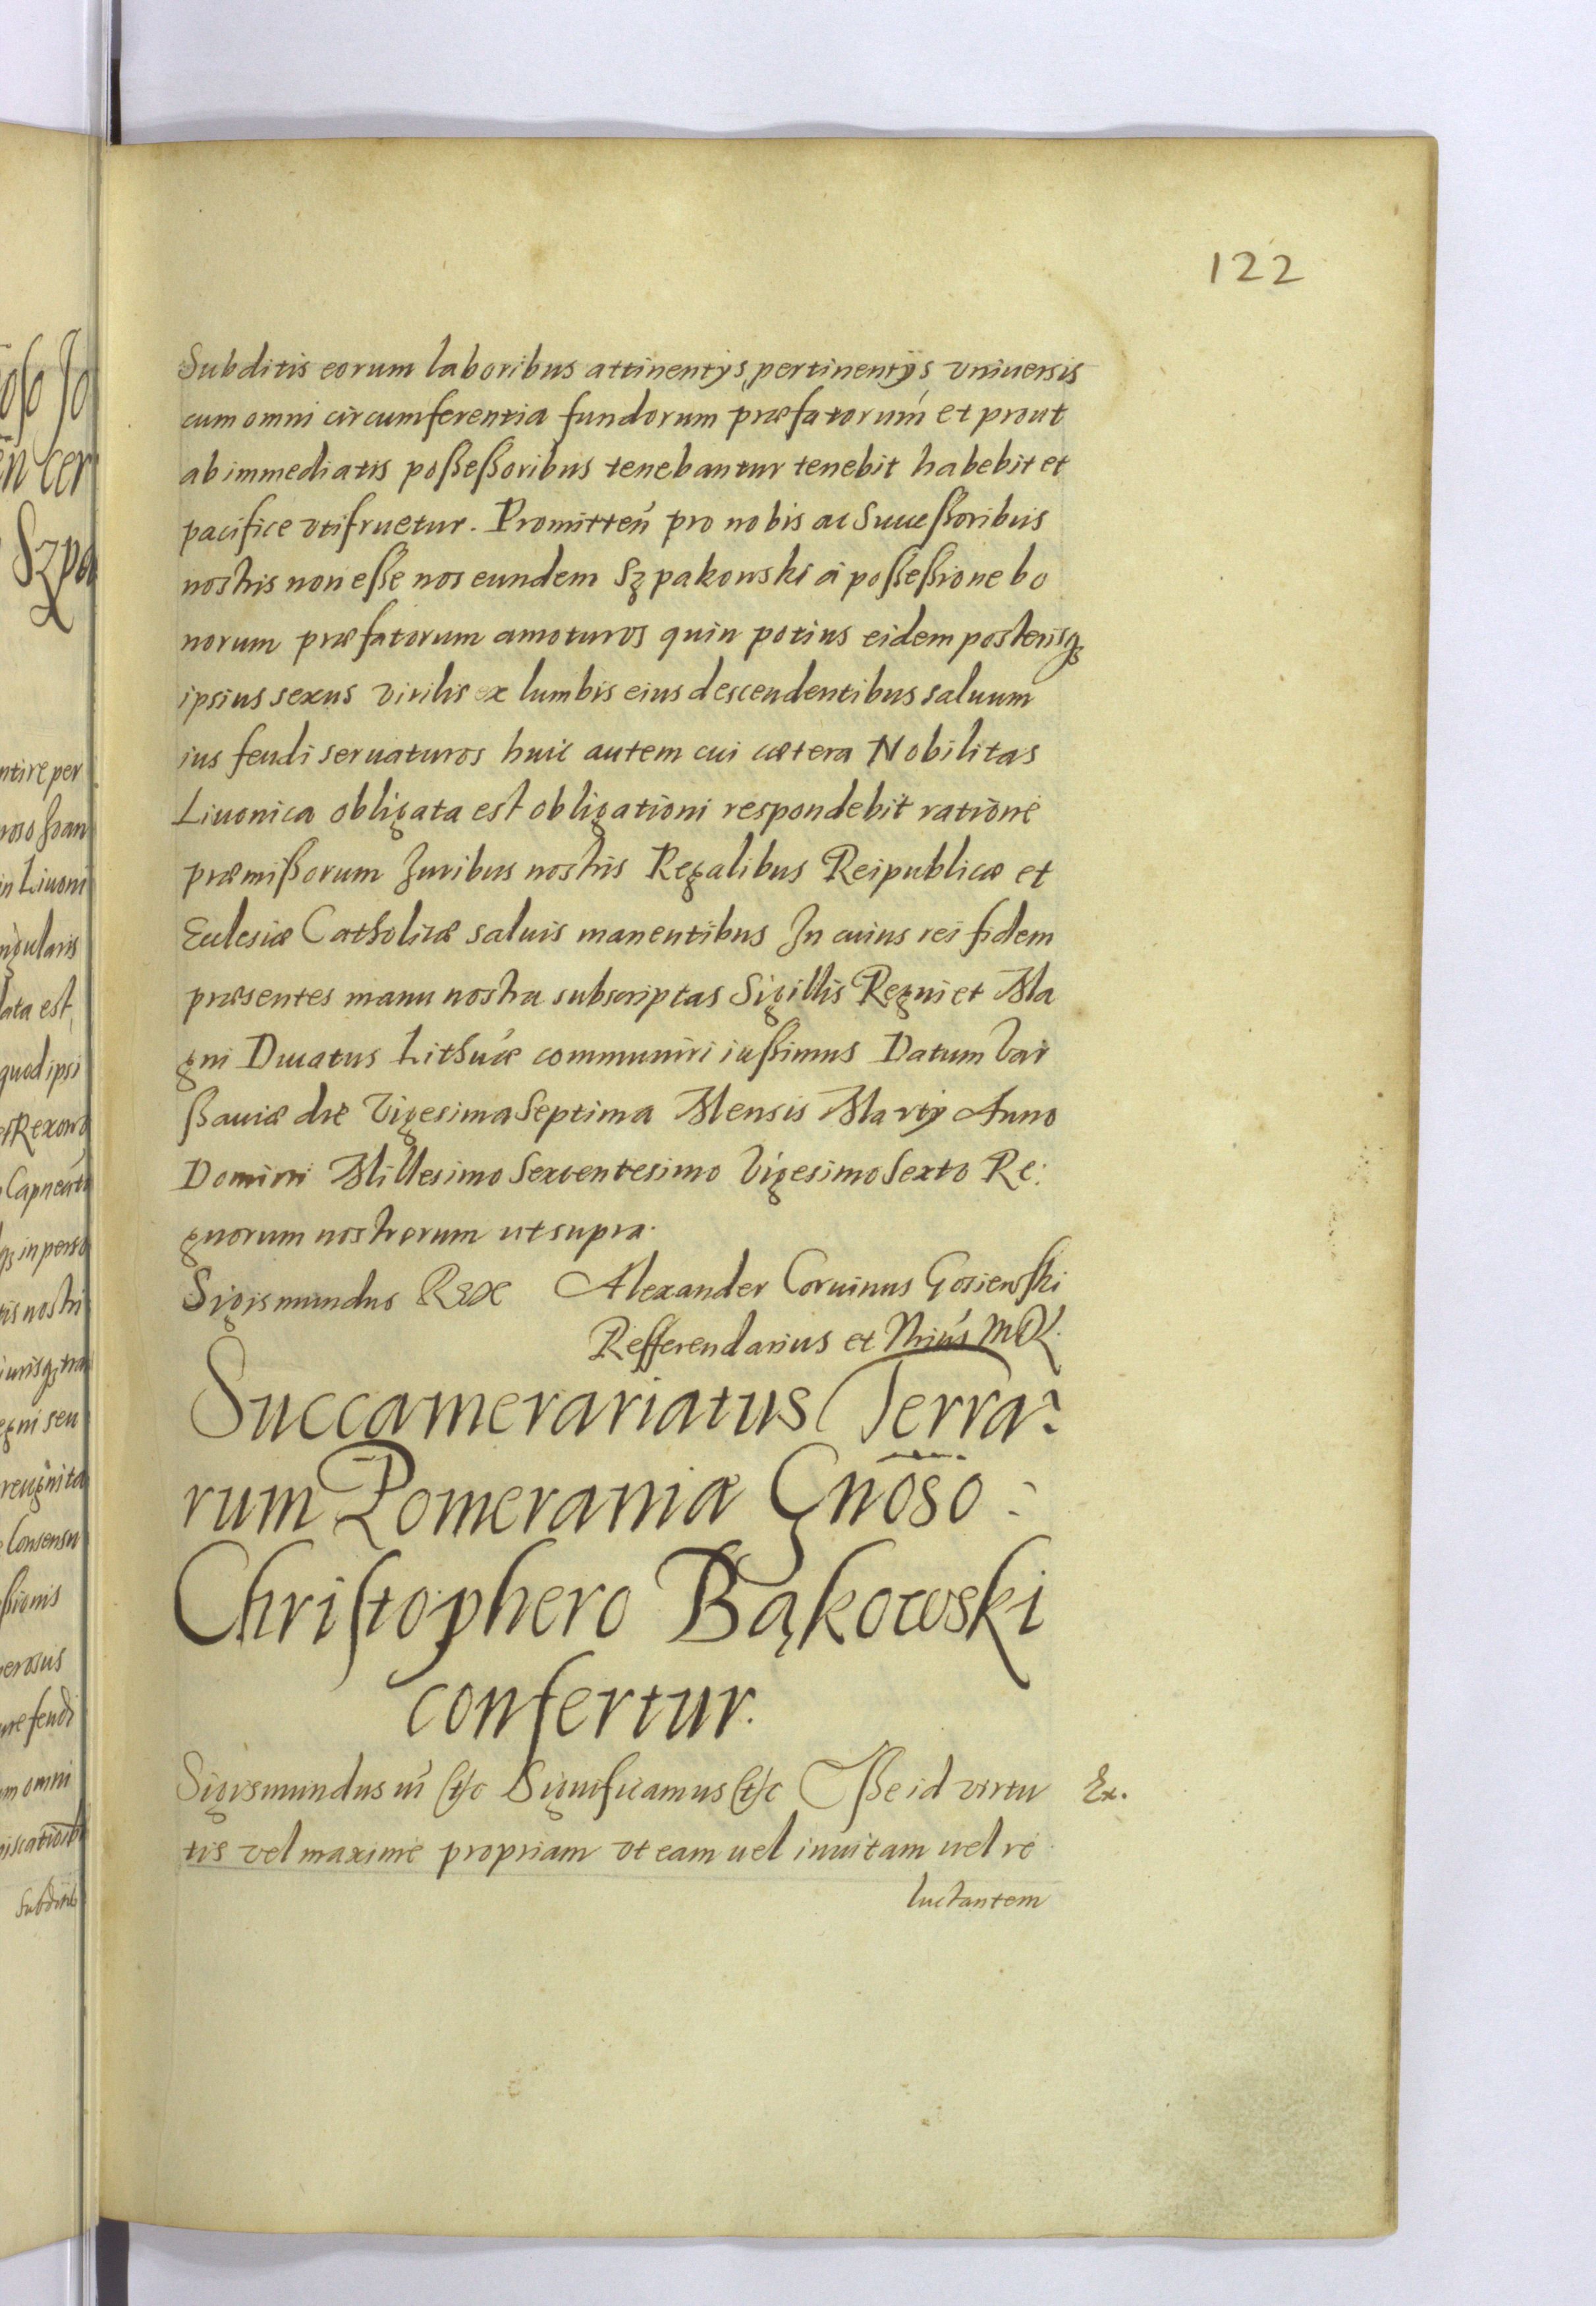 122
Subditis eorum laboribus attinentÿs, pertinentÿs vniuersis
cum omni circumferentia fundorum præfatorum et prout
ab immediatis poßeßoribus tenebantur tenebit habebit et
pacifice vtifruetur. Promitteń pro nobis ac Succeßoribus
nostris non eße nos eundem Szpakowski à poßeßione bo
norum præfatorum amoturos quin potius eidem posterisqȝ
ipsius sexus virilis ex lumbis eius descendentibus saluum
ius feudi seruaturos huic autem cui cætera Nobilitas
Liuonica obligata est obligationi respondebit ratione
præmißorum Juribus nostris Regalibus Reipublicæ et
Ecclesiæ Catholicæ saluis manentibus In cuius rei fidem
præsentes manu nostra subscriptas Sigillis Regni et Ma
gni Ducatus Lithuæ communiri iußimus Datum Var
ßauiæ die Vigesima Septima Mensis Martÿ Anno
Domini Millesimo Sexcentesimo Vigesimo Sexto Re:
gnorum nostrorum ut supra.
Sigismundus Rex Alexander Coruinus Gosiewski
Refferendarius et Nrius MDL.
Succamerariatus Terra:
rum Pomeraniæ Gnoso:
Christophero Bąkowski
confertur.
Sigismundus iii &c Significamus &c Eße id virtu Ex.
tis vel maxime propriam vt eam uel inuitam uel re
luctantem